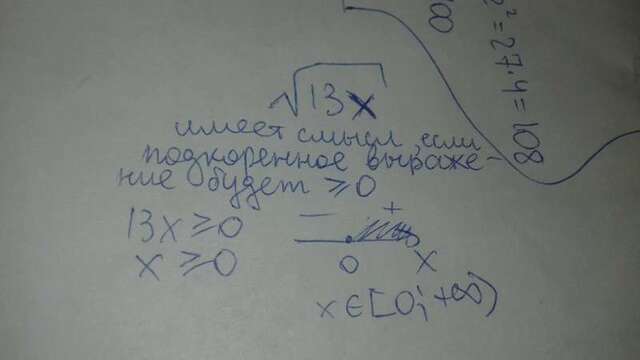 √13x
имеет смысл, если
подкоренное выраже-
ние будет ≥0
13x≥0
x≥0
− +
0 x
x∈[0;+∞)
²=27·4=108